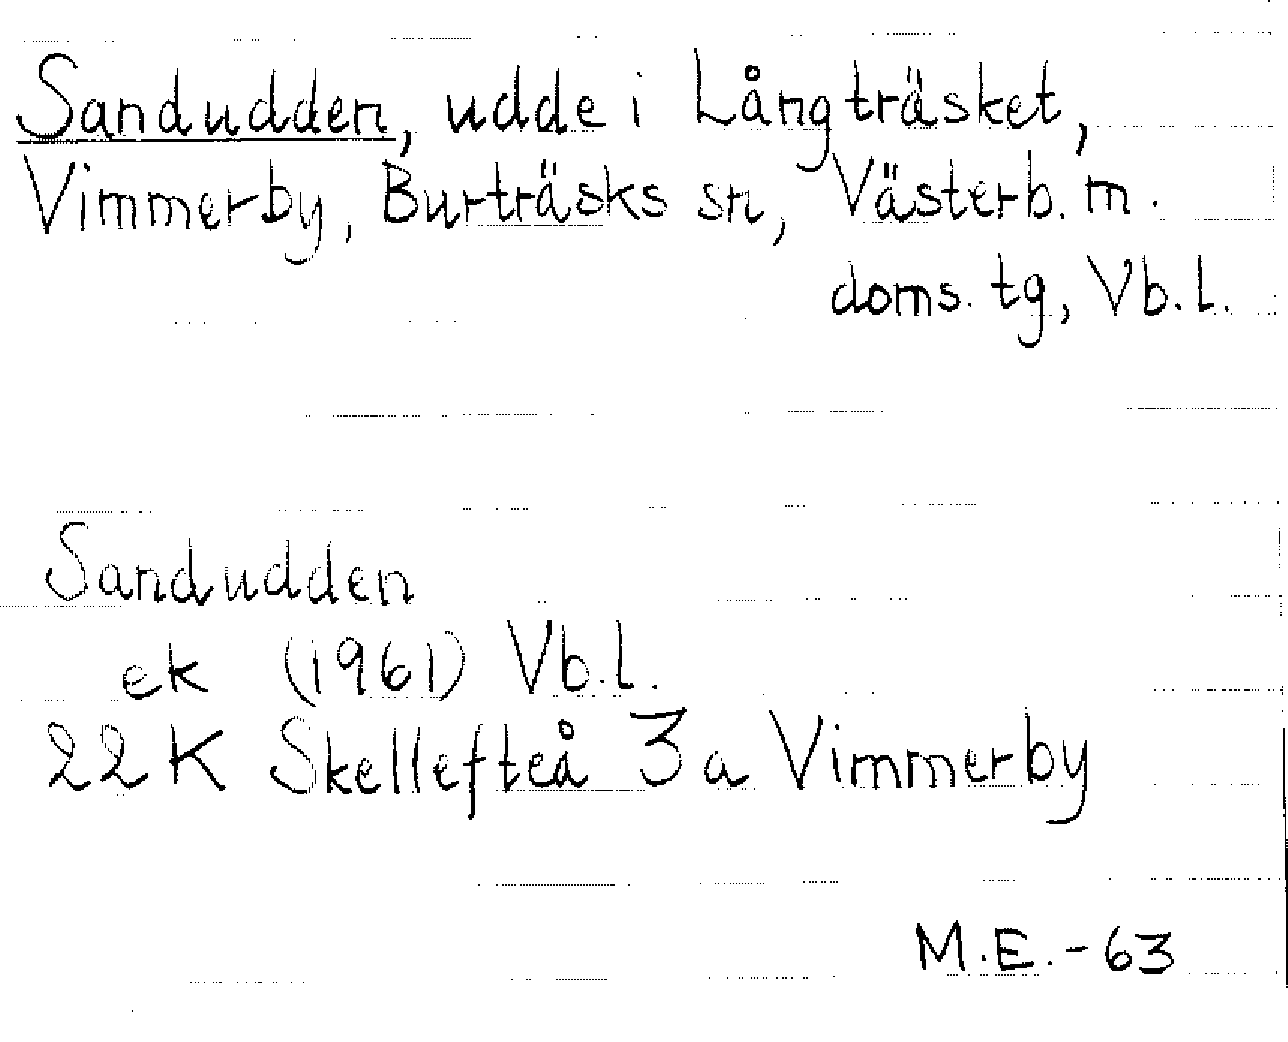 Sandudden, udde i Långträsket,
Vimmerby, Burträsks sn, Västerb. m.
doms. tg, Vb. l.
Sandudden
ek (1961) Vb. l.
22 K Skellefteå 3 a Vimmerby
M. E. - 63